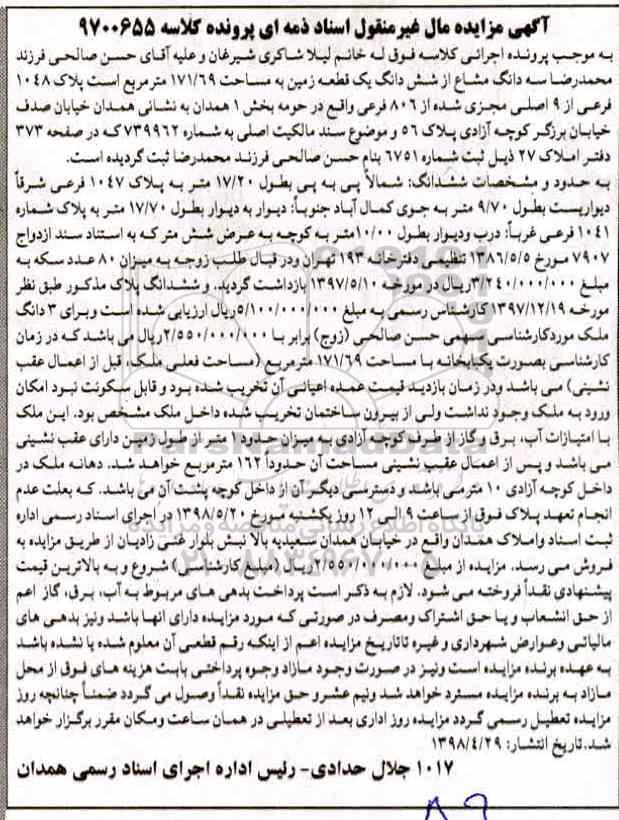 آگهی مزایده مال غیرمنقول اسناد ذمه ای پرونده کلاسه ۹۷۰۰۶۵۵
به موجب پرونده اجرائی کلاسه فوق له خانم لیلا شاکری شیرغان و علیه آقای حسن صالحی فرزند
محمدرضا سه دانگ مشاع از شش دانگ یک قطعه زمین به مساحت ۱۷۱/۶۹ مترمربع است پلاک ۱۰۴۸
فرعی از ۹ اصلی مجزی شده از ۸۰۶ فرعی واقع در حومه بخش ۱ همدان به نشانی همدان خیابان صدف
خیابان برزگر کوچه آزادی پلاک ۵۶ و موضوع سند مالکیت اصلی به شماره ۷۳۹۹۶۲ که در صفحه ۳۷۳
دفتر املاک ۲۷ ذیل ثبت شماره ۶۷۵۱ بنام حسن صالحی فرزند محمدرضا ثبت گردیده است.
به حدود و مشخصات ششدانگ: شمالاً پی به پی بطول ۱۷/۲۰ متر به پلاک ۱۰۴۷ فرعی شرقاً
دیواریست بطول ۹/۷۰ متر به جوی کمال آباد جنوباً: دیوار به دیوار بطول ۱۷/۷۰ متر به پلاک شماره
۱۰۴۱ فرعی غرباً: درب ودیوار بطول ۱۰/۰۰متر به کوچه به عرض شش متر که به استناد سند ازدواج
۷۹۰۷ مورخ ۱۳۸۶/۵/۵ تنظیمی دفترخانه ۱۹۳ تهران ودر قبال طلب زوجه به میزان ۸۰ عدد سکه به
مبلغ ۳/۲۴۰/۰۰۰/۰۰۰ریال در مورخه ۱۳۹۷/۵/۱۰ بازداشت گردید. و ششدانگ پلاک مذکور طبق نظر
مورخه ۱۳۹۷/۱۲/۱۹ کارشناس رسمی به مبلغ ۵/۱۰۰/۰۰۰/۰۰۰ریال ارزیابی شده است وبرای ۳ دانگ
ملک موردکارشناسی سهمی حسن صالحی (زوج) برابر با ۲/۵۵۰/۰۰۰/۰۰۰ریال می باشد که در زمان
کارشناسی بصورت یکبابخانه با مساحت ۱۷۱/۶۹ مترمربع (مساحت فعلی ملک، قبل از اعمال عقب
نشینی) می باشد ودر زمان بازدید قیمت عمده اعیانی آن تخریب شده بود و قابل سکونت نبود امکان
ورود به ملک وجود نداشت ولی از بیرون ساختمان تخریب شده داخل ملک مشخص بود. این ملک
با امتیازات آب، برق و گاز از طرف کوچه آزادی به میزان حدود ۱ متر از طول زمین دارای عقب نشینی
می باشد و پس از اعمال عقب نشینی مساحت آن حدوداً ۱۶۲ مترمربع خواهد شد. دهانه ملک در
داخل کوچه آزادی ۱۰ مترمی باشد و دسترسی دیگر آن از داخل کوچه پشت آن می باشد. که بعلت عدم
انجام تعهد پلاک فوق از ساعت ۹ الی ۱۲ روز یکشنبه مورخ ۱۳۹۸/۵/۲۰ در اجرای اسناد رسمی اداره
ثبت اسناد واملاک همدان واقع در خیابان همدان سعیدیه بالا نبش بلوار غنی زادیان از طریق مزایده به
فروش می رسد. مزایده از مبلغ ۲/۵۵۰/۰۰۰/۰۰۰ریال (مبلغ کارشناسی) شروع و به بالاترین قیمت
پیشنهادی نقداً فروخته می شود. لازم به ذکر است پرداخت بدهی های مربوط به آب، برق، گاز اعم
از حق انشعاب و یا حق اشتراک ومصرف در صورتی که مورد مزایده دارای انها باشد ونیز بدهی های
مالیاتی وعوارض شهرداری و غیره تاتاریخ مزایده اعم از اینکه رقم قطعی آن معلوم شده یا نشده باشد
به عهده برنده مزایده است ونیز در صورت وجود مازاد وجوه پرداختی بابت هزینه های فوق از محل
مازاد به برنده مزایده مسترد خواهد شد ونیم عشرو حق مزایده نقداً وصول می گردد ضمناً چنانچه روز
مزایده تعطیل رسمی گردد مزایده روز اداری بعد از تعطیلی در همان ساعت ومکان مقرر برگزار خواهد
شد.تاریخ انتشار: ۱۳۹۸/۴/۲۹
۱۰۱۷ جلال حدادی- رئیس اداره اجرای اسناد رسمی همدان
ParsNamadData
پایگاه اطلاع رسانی مناقصه و مزایده